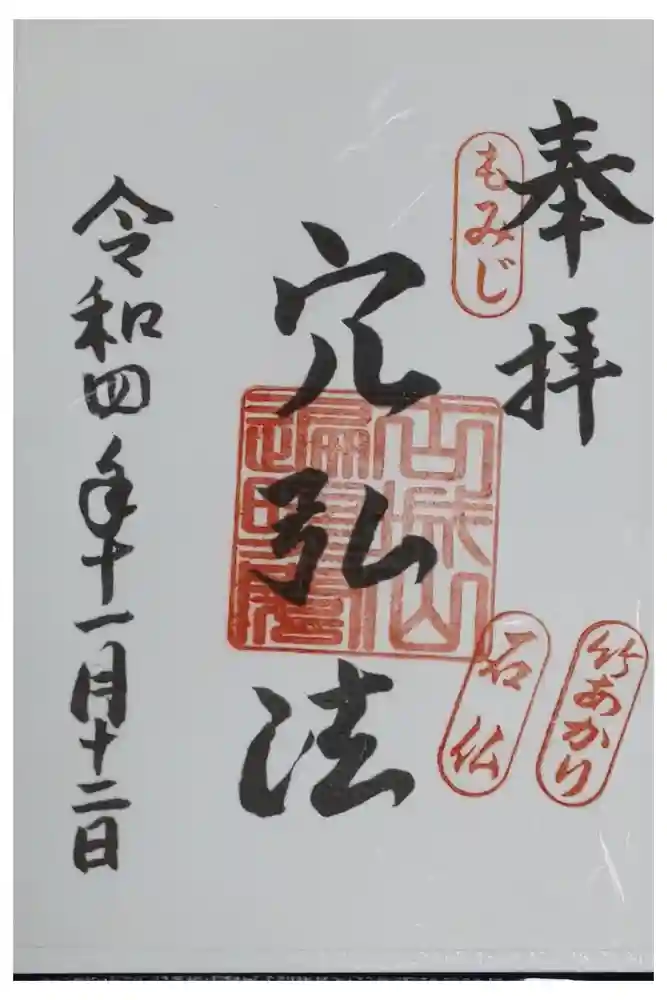 奉拝
もみじ
竹あかり
石仏
穴弘法
古城山
遍照院
令和四年十一月十二日